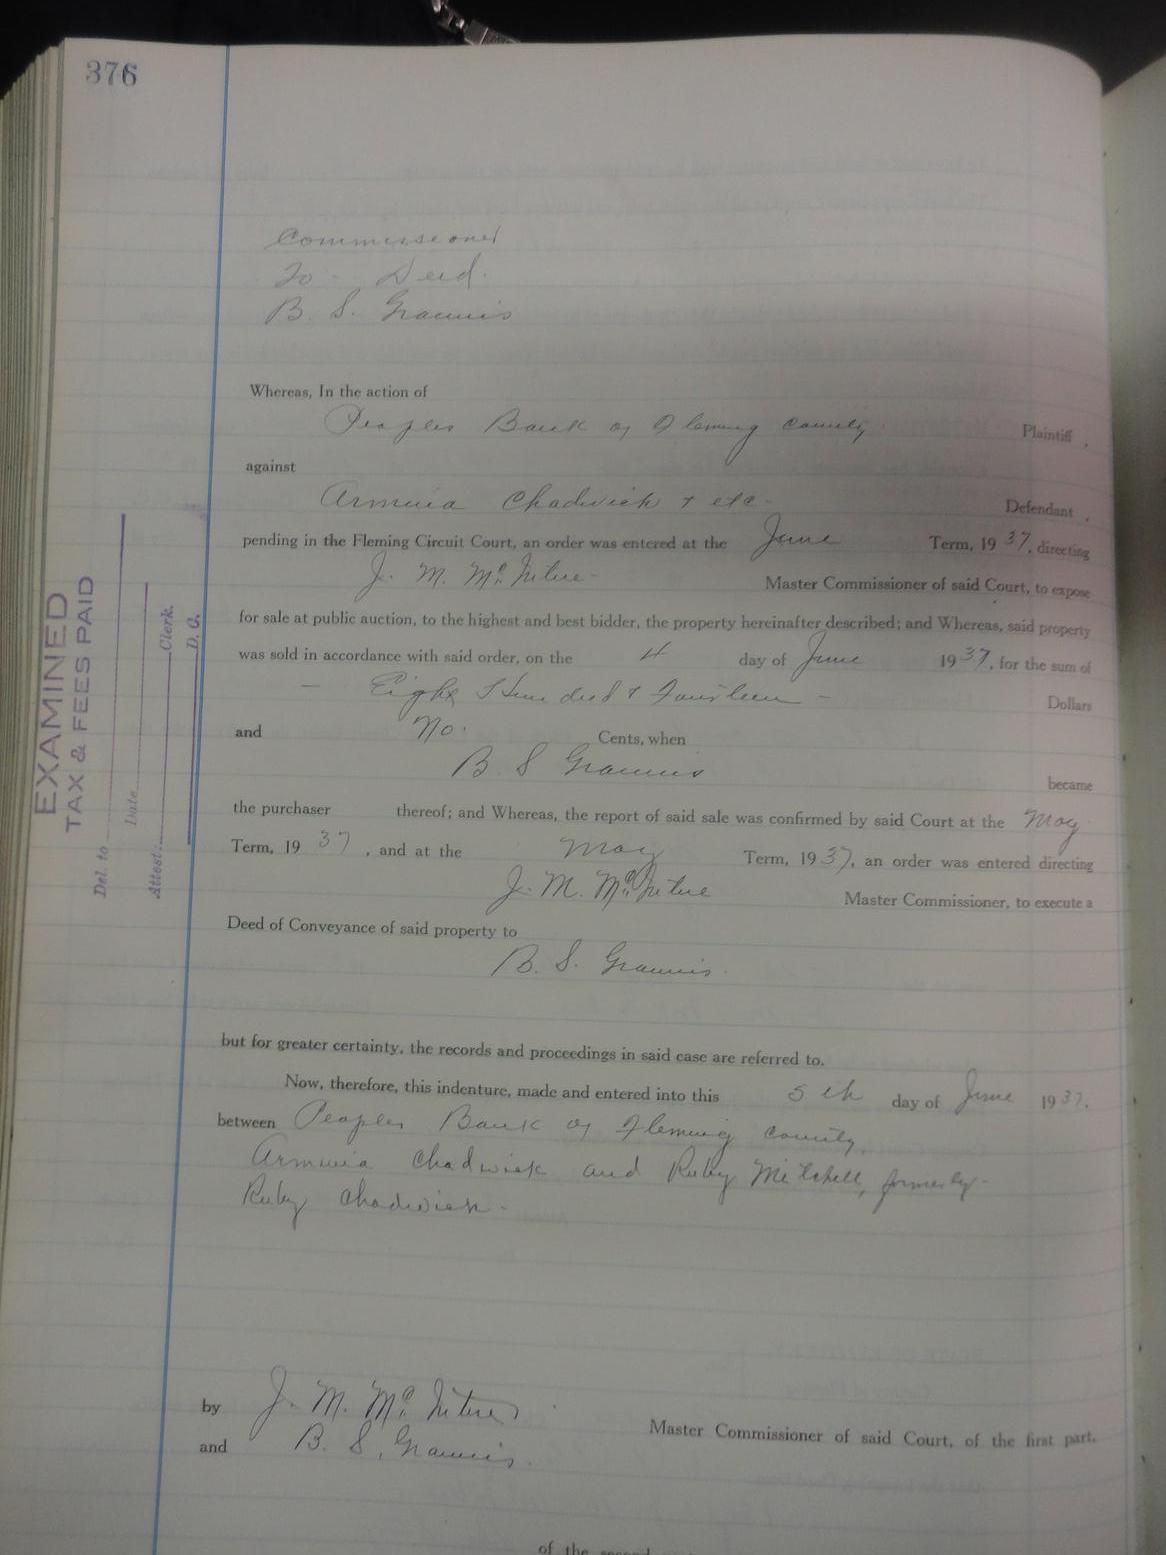 376
Commissioner
To - Deed.
B. S. Grannis
Whereas, In the action of
Peoples Bank of Fleming County Plaintiff,
against
Armina Chadwick & etc - Defendant,
pending in the Fleming Circuit Court, an order was entered at the June Term, 1937, directing
J. M. McIntire - Master Commissioner of said Court, to expose
for sale at public auction, to the highest and best bidder, the property hereinafter described; and Whereas, said property
was sold in accordance with said order, on the 4 day of June 1937, for the sum of
- Eight Hundred & Fourteen - Dollars
and No. Cents, when
B S Grannis became
the purchaser thereof; and Whereas, the report of said sale was confirmed by said Court at the May
Term, 1937, and at the May Term, 1937, an order was entered directing
J. M. McIntire Master Commissioner, to execute a
Deed of Conveyance of said property to
B. S. Grannis.
but for greater certainty, the records and proceedings in said case are referred to.
Now, therefore, this indenture, made and entered into this 5th day of June 1937,
between Peoples Bank of Fleming County,
Armina Chadwick and Ruby Mitchell, formerly -
Ruby Chadwick -
by J. M. McIntire
Master Commissioner of said Court, of the first part,
and B. S. Grannis.
of the second
EXAMINED
TAX & FEES PAID
Del. to
Date
Attest: Clerk.
D. C.